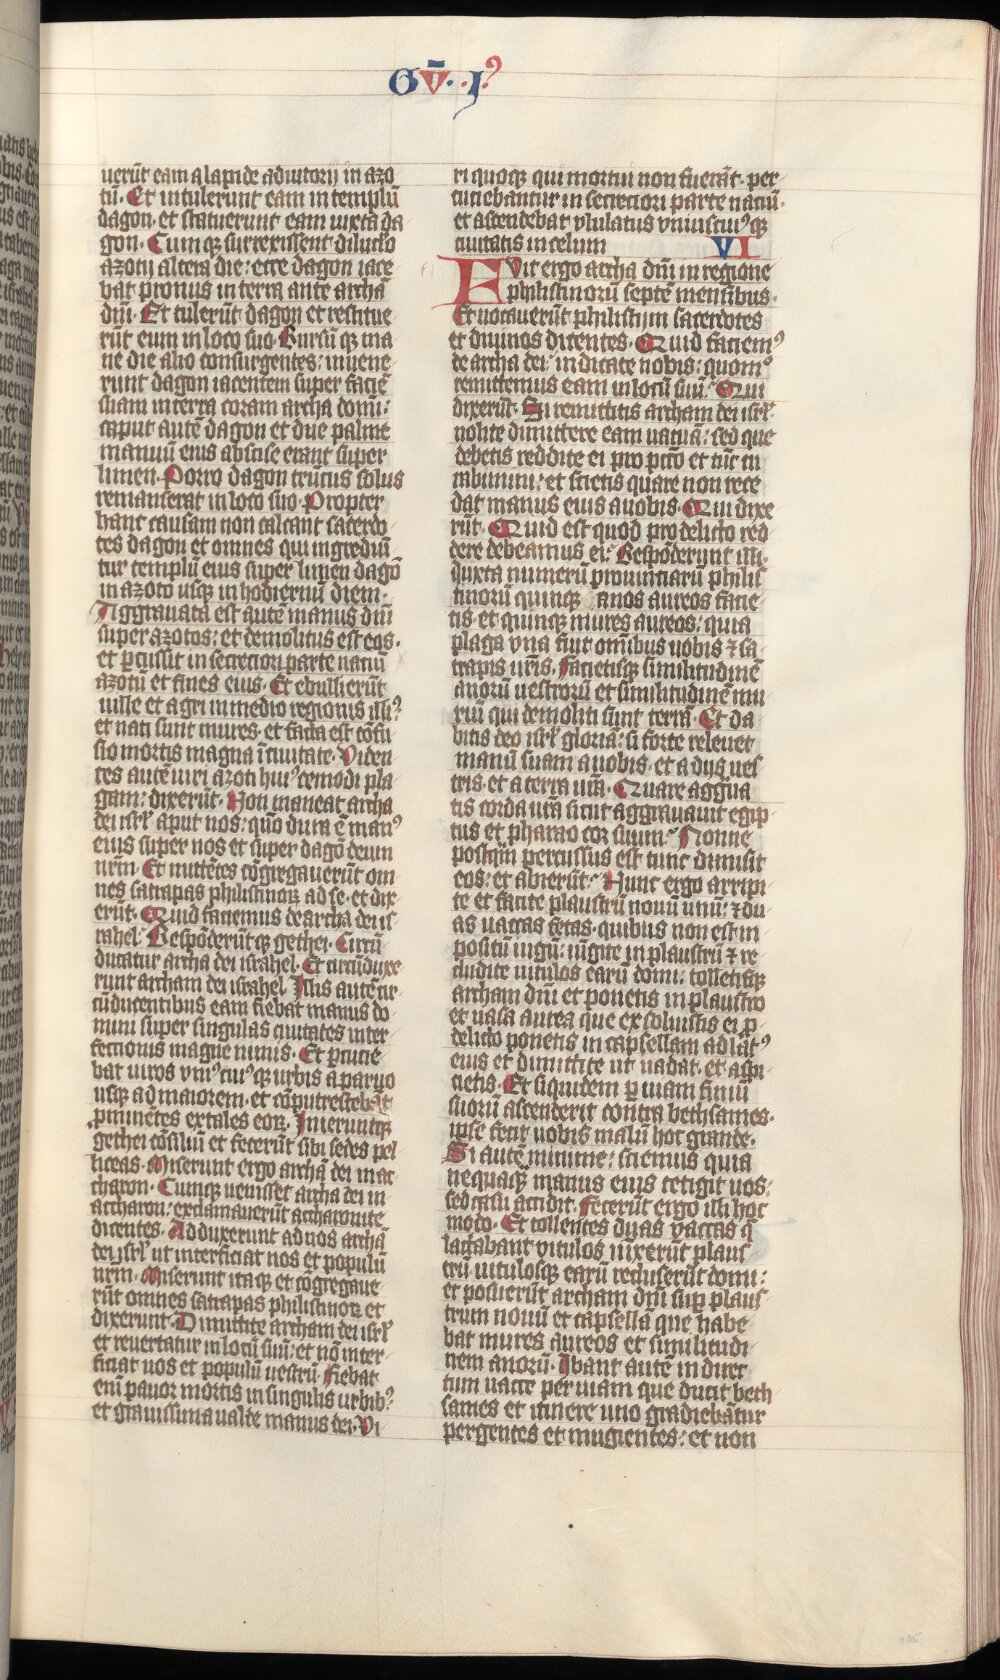 Gv̄. .I.ꝰ
uerūt eam a lapide adiutorij in azo
tū. Et intulerunt eam in templū
dagon. et statuerunt eam iuxta da
gon. Cumqꝫ surrexissent diluclo
azotij altera die: ecce dagon iace
bat pronus in terra ante archā
dni. Et tulerūt dagon et restitue
rūt eum in loco suo. Rursūqꝫ ma
ne die alio consurgentes: inuene
runt dagon iacentem super faciē
suam in terra coram archa domi:
caput autē dagon et due palme
manuū eius abscise erant super
limen. Porro dagon trūcus solus
remanserat in loco suo. Propter
hanc causam non calcant sacerdo
tes dagon et omnes qui ingrediū
tur templū eius super limen dagō
in azoto usqꝫ in hodiernū diem.
Aggrauata est autē manus dni
super azotos: et demolitus est eos.
et ꝑcussit in secreciori parte natiū
azotū et fines eius. Et ebullierūt
uille et agri in medio regionis illiꝰ
et nati sunt mures. et facta est cōfu
sio mortis magna ī ciuitate. Viden
tes autē uiri azoti huiꝰcemodi pla
gam: dixerūt. Non maneat archa
dei isrl̄ aput nos: qūo dura ē manꝰ
eius super nos et super dagō deum
nrm̄. Et mittētes cōgregauerūt om
nes satrapas philistinoꝝ ad se. et dix
erūt. Quid faciemus de archa dei is
rahel. Respōderūtqꝫ gethei. Circū
ducatur archa dei israhel. Et circūduxe
runt archam dei israhel. Illis autē cir
cūducentibus eam fiebat manus do
mini super singulas ciuitates inter
fectionis magne nimis. Et ꝑcucie
bat uiros vniꝰcuiꝰqꝫ urbis a paruo
usqꝫ ad maiorem. et cōputrescebāt
ꝓminētes extales eoꝝ. Inieruntqꝫ
gethei cōsiliū et fecerūt sibi sedes pel
liceas. Miserunt ergo archā dei in ac
charon. Cumqꝫ uenisset archa dei in
accharon: exclamauerūt accharonite
dicentes. Adduxerunt ad nos archā
dei isrl̄ ut interficiat nos et populū
nrm. Miserunt itaqꝫ et cōgregaue
rūt omnes satrapas philistinoꝝ et
dixerunt. Dimittite archam dei isrl̄
et reuertatur in locū suū: et nō inter
ficiat nos et populū nestrū. Fiebat
enī pauor mortis in singulis urbibꝰ
et grauissima ualde manus dei. Vi
ri quoqꝫ qui mortui non fuerāt. per
cuciebantur in secreciori parte natiū.
et ascendebat vlulatus vniuscuiꝰqꝫ
ciuitatis in celum VI
FVit ergo archa dni in regione
philistinorū septē mensibus.
Et uocauerūt philistijm sacerdotes
et diuinos dicentes. Quid faciemꝰ
de archa dei: indicate nobis: quomͦ
remittemus eam in locū suū. Qui
dixerūt. Si remittitis archam dei isrl̄
nolite dimittere eam uacuā: sed que
debetis reddite ei pro pctō et tūc cu
rabimini: et scietis quare non rece
dat manus eius a uobis. Qui dixe
rūt. Quid est quod pro delicto red
dere debeamus ei: Responderunt illi.
Iuxta numerū prouinciarū philis
tinorū quinqꝫ anos aureos facie
tis et quinqꝫ mures aureos: quia
plaga vna fuit om̄ibus uobis ⁊ sa
trapis uris̄. Facietisqꝫ similitudinē
anorū uestrorū et similitudinē mu
riū qui demoliti sunt terrā. Et da
bitis deo isrl̄ gloriā: si forte releuet
manū suam a uobis. et a dijs ues
tris. et a terra urā. Quare aggra
tis corda urā sicut aggrauauit egip
tus et pharao cor suum. Nonne
postqm̄ percussus est tunc dimisit
eos: et abierūt. Nunc ergo arripi
te et facite plaustrū nouū unū: ⁊ du
as uaccas fetas. quibus non est in
positū iugū: iūgite in plaustrū ⁊ re
cludite uitulos earū domi. tolletisqꝫ
archam dni et ponetis in plaustro
et uasa aurea que exsoluistis ei ꝓ
delicto ponetis in capsellam ad latꝰ
eius et dimittite ut uadat. et aspi
cietis. Et siquidem ꝑ uiam finiū
suorū ascenderit contra bethsames.
ipse fecit uobis malū hoc grande.
Si autē minime: sciemus quia
nequaqꝫ manus eius tetigit nos:
sed casu accidit. Fecerūt ergo illi hoc
modo. Et tollentes duas vaccas q̄
lactabant vitulos iūxerūt plaus
trū. uitulosqꝫ earū recluserūt domi:
et posuerūt archam dni suꝑ plaus
trum nouū et capsellā que habe
bat mures aureos et similitudi
nem anorū. Ibant autē in direc
tum uacce per uiam que ducit beth
sames et itinere uno gradiebātur
pergentes et mugientes: et non